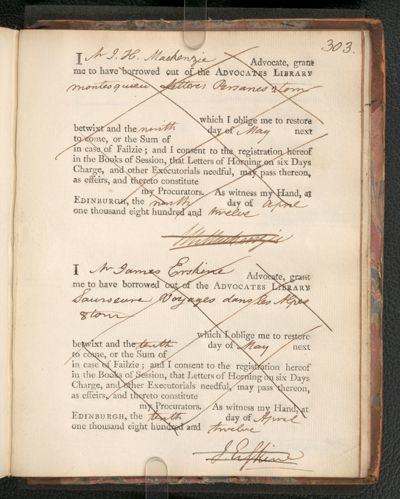 303.
I Mr J. H. Mackenzie Advocate, grant
me to have borrowed out of the ADVOCATES LIBRARY
montesquieu Lettres Persanes 2 tom
which I oblige me to restore
betwixt and the ninth day of May next
to come, or the Sum of
in case of Failzie; and I consent to the registration hereof
in the Books of Session, that Letters of Horning on six Days
Charge, and other Executorials needful, may pass thereon,
as effeirs, and thereto constitute
my Procurators. As witness my Hand, at
EDINBURGH, the ninth day of April
one thousand eight hundred and twelve
JHMackenzie
I Mr James Erskine Advocate, grant
me to have borrowed out of the ADVOCATES LIBRARY
Saussure Voyages dans les Alpes
8 tom
which I oblige me to restore
betwixt and the tenth day of May next
to come, or the Sum of
in case of Failzie; and I consent to the registration hereof
in the Books of Session, that Letters of Horning on six Days
Charge, and other Executorials needful, may pass thereon,
as effeirs, and thereto constitute
my Procurators. As witness my Hand, at
EDINBURGH, the tenth day of April
one thousand eight hundred and twelve
J Erskine